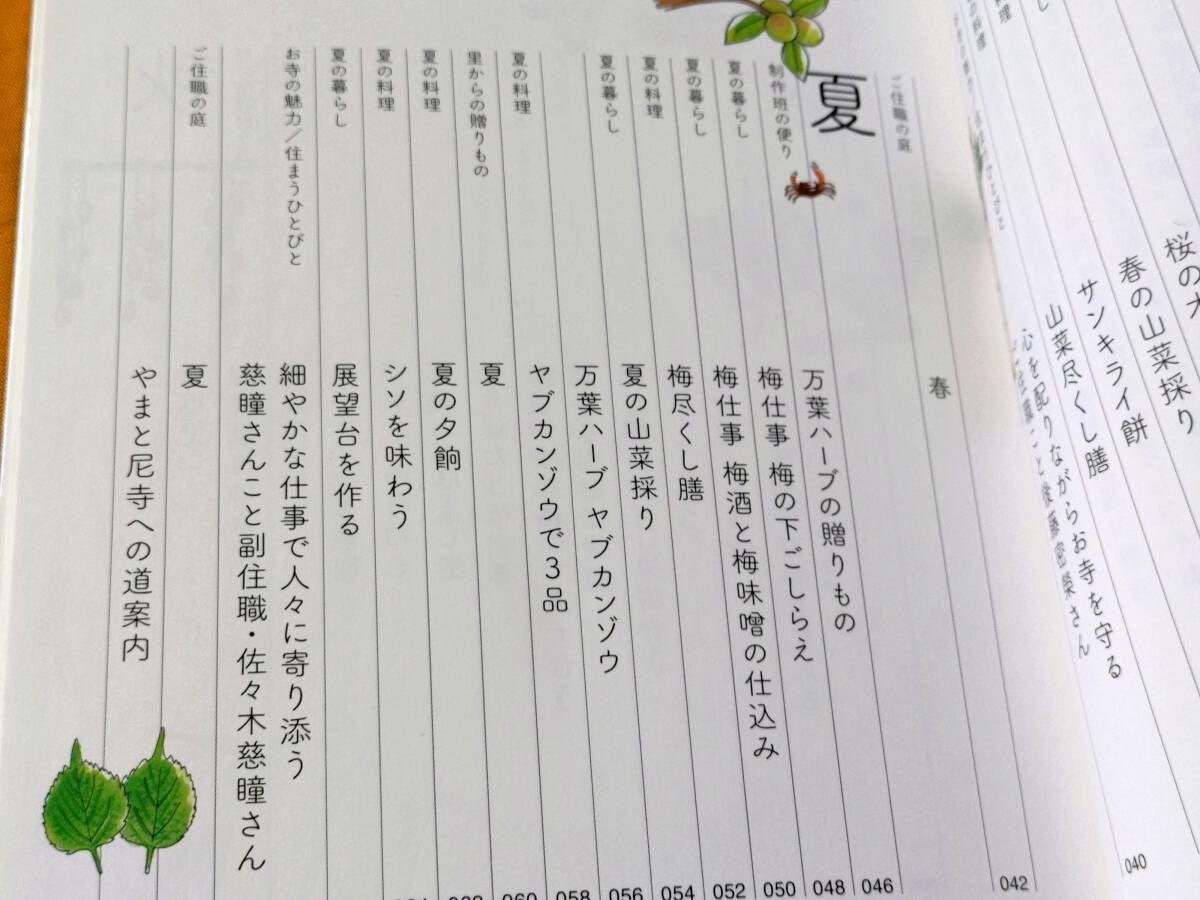 春の山菜採り
サンキライ餅
山菜尽くし膳 040
心を配りながらお寺を守る
ご住職の庭 春 042
夏
制作班の便り 万葉ハーブの贈りもの 046
夏の暮らし 梅仕事 梅の下ごしらえ 048
夏の暮らし 梅仕事 梅酒と梅味噌の仕込み 050
夏の料理 梅尽くし膳 052
夏の暮らし 夏の山菜採り 054
万葉ハーブ ヤブカンゾウ 056
夏の料理 ヤブカンゾウで3品 058
里からの贈りもの 夏 060
夏の料理 夏の夕餉
夏の料理 シソを味わう
夏の暮らし 展望台を作る
お寺の魅力/住まうひとびと 細やかな仕事で人々に寄り添う
慈瞳さんこと副住職・佐々木慈瞳さん
ご住職の庭 夏
やまと尼寺への道案内